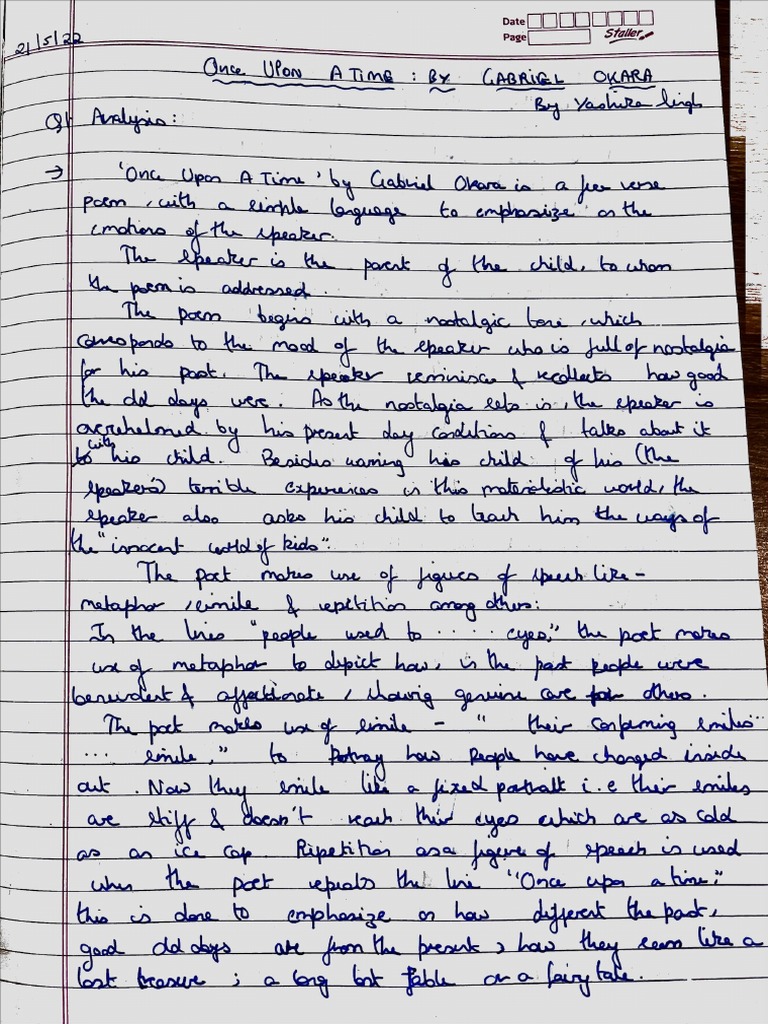 Date
Page
Staller
21/5/22
Once Upon A Time : By Gabriel Okara
By Yashika Singh
Q1 Analysis :
→ 'Once Upon A Time' by Gabriel Okara is a free verse
poem, with a simple language to emphasize on the
emotions of the speaker.
The speaker is the parent of the child, to whom
the poem is addressed.
The poem begins with a nostalgic tone, which
corresponds to the mood of the speaker who is full of nostalgia
for his past. The speaker reminisces & recollects how good
the old days were. As the nostalgia sets in, the speaker is
overwhelmed by his present day conditions & talks about it
with his child. Besides warning his child of his (the
speakers) terrible experiences in this materialistic world, the
speaker also asks his child to teach him the ways of
the "innocent world of kids".
The poet makes use of figures of speech like -
metaphor, simile & repetition among others:
In the lines "people used to ..... eyes," the poet makes
use of metaphor to depict how, in the past people were
benevolent & affectionate, showing genuine care for others.
The poet makes use of simile - " their conforming smiles ...
... smile," to portray how people have changed inside
out. Now they smile like a fixed portrait i.e their smiles
are stiff & doesn't reach their eyes which are as cold
as an ice cap. Ripetition as a figure of speech is used
when the poet repeats the line "Once upon a time;"
this is done to emphasize on how different the past,
good old days are from the present & how they seem like a
lost treasure ; a long lost fable or a fairy tale.